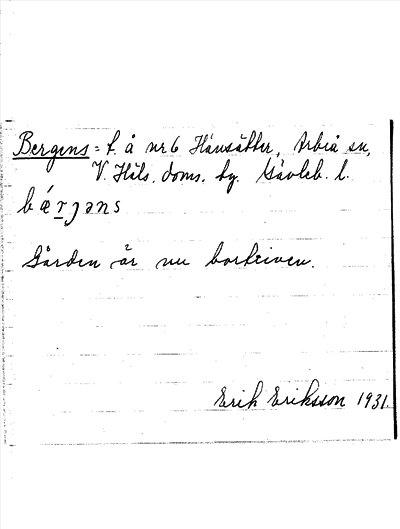 Bergens = f. å nr 6 Hånsätter, Arbrå sn,
V. Häls. doms. hg. Gävleb. l.
bǽrjəns
Gården är nu bortriven.
Erik Eriksson 1931.